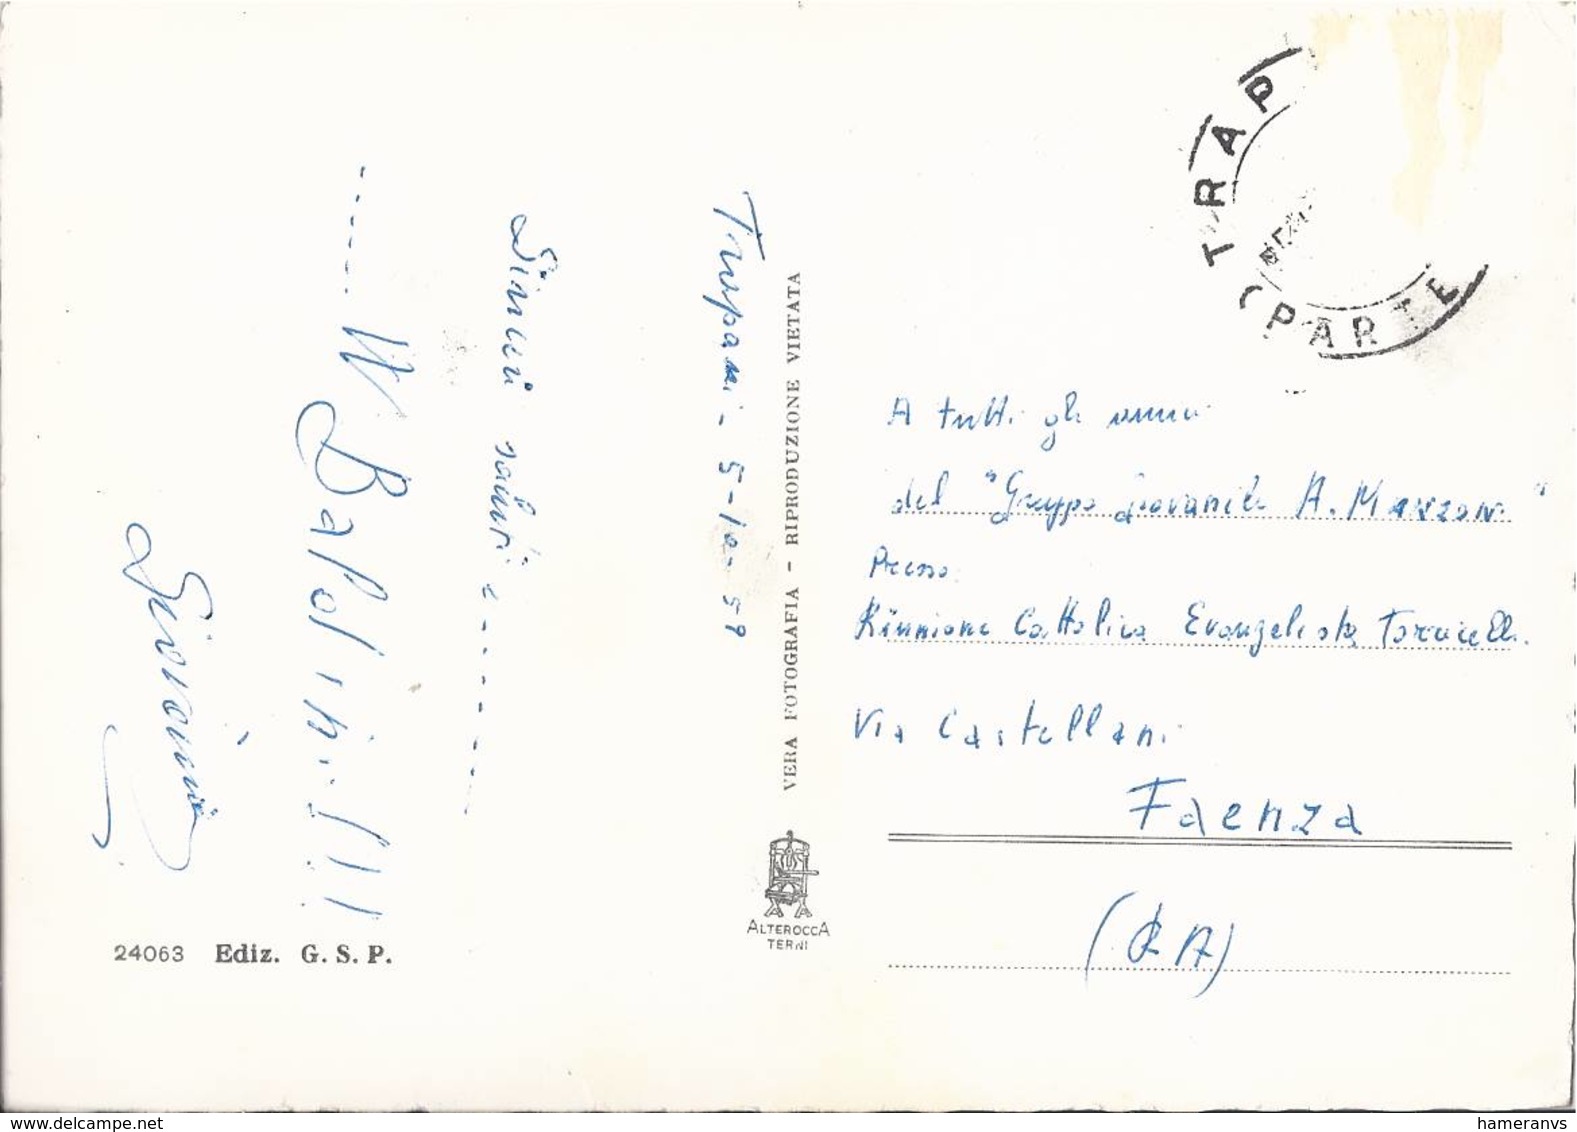 Trapani - 5-10-59
Sinceri saluti e
W Baldini!!!
Giovanni
24063 Ediz. G. S. P.
VERA FOTOGRAFIA - RIPRODUZIONE VIETATA
ALTEROCCA
TERNI
TRAP
PARTE
A tutti gli amici
del "Gruppo giovanile A. Manzoni"
Presso
Riunione Cattolica Evangelista Torricelli
Via Castellani
Faenza
(RA)
www.delcampe.net
hameranvs